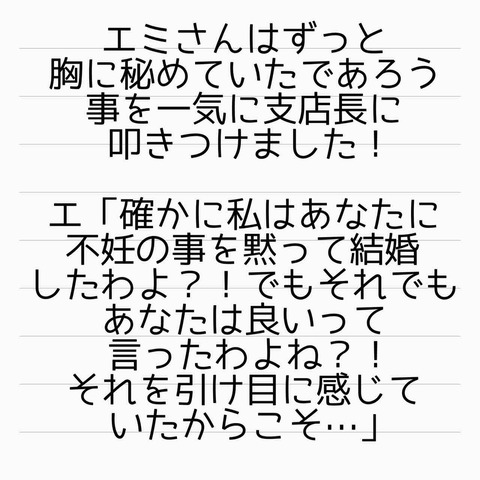 エミさんはずっと
胸に秘めていたであろう
事を一気に支店長に
叩きつけました！
エ「確かに私はあなたに
不妊の事を黙って結婚
したわよ？！でもそれでも
あなたは良いって
言ったわよね？！
それを引け目に感じて
いたからこそ…」